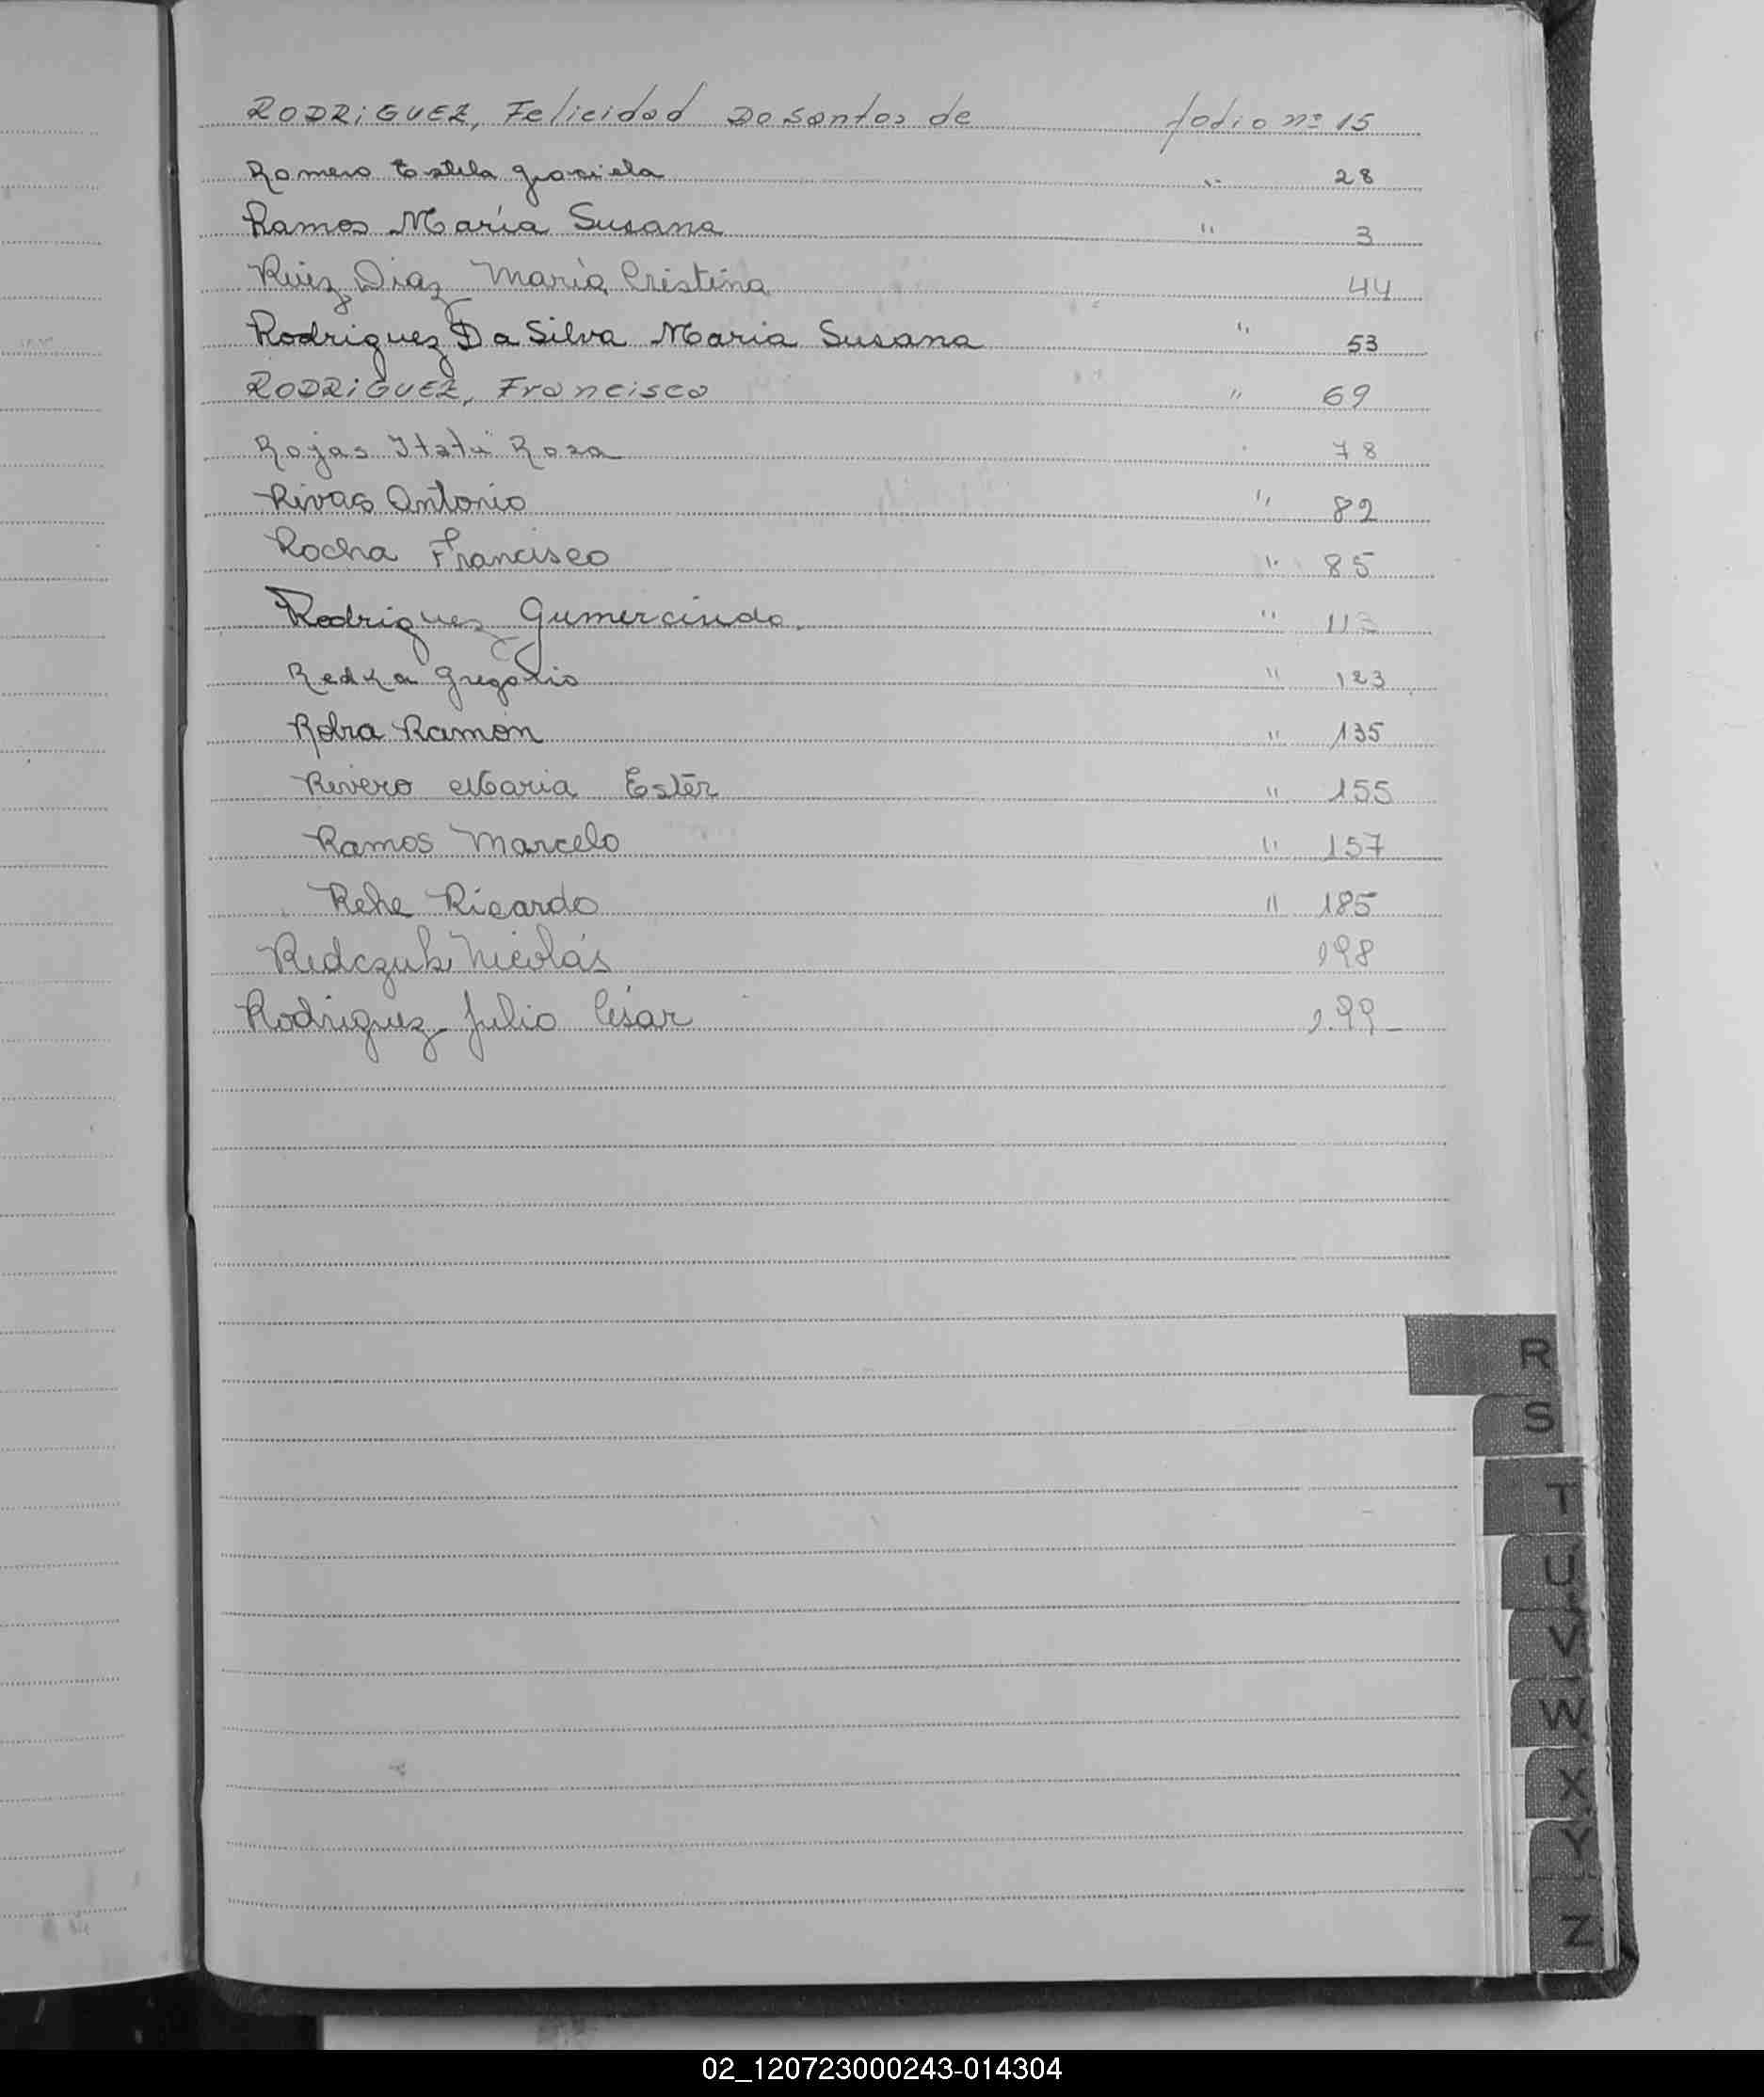 RODRiGUEZ, Felicidad Dosantos de folio nº 15
Romero Estela Graciela " 28
Ramos María Susana " 3
Ruiz Diaz María Cristina 44
Rodriguez Da Silva Maria Susana " 53
RODRiGUEZ, Francisco " 69
Rojas Itatí Rosa 78
Rivas Antonio " 82
Rocha Francisco " 85
Rodriguez Gumercindo. "
Redka Gregorio " 123
Ramón " 135
Rivero Maria Ester " 155
Ramos Marcelo " 157
Rehe Ricardo " 185
Redczuk Nicolás 198
Rodriguez Julio César 199
R
S
T
U
V
W
X
Y
Z
02_120723000243-014304